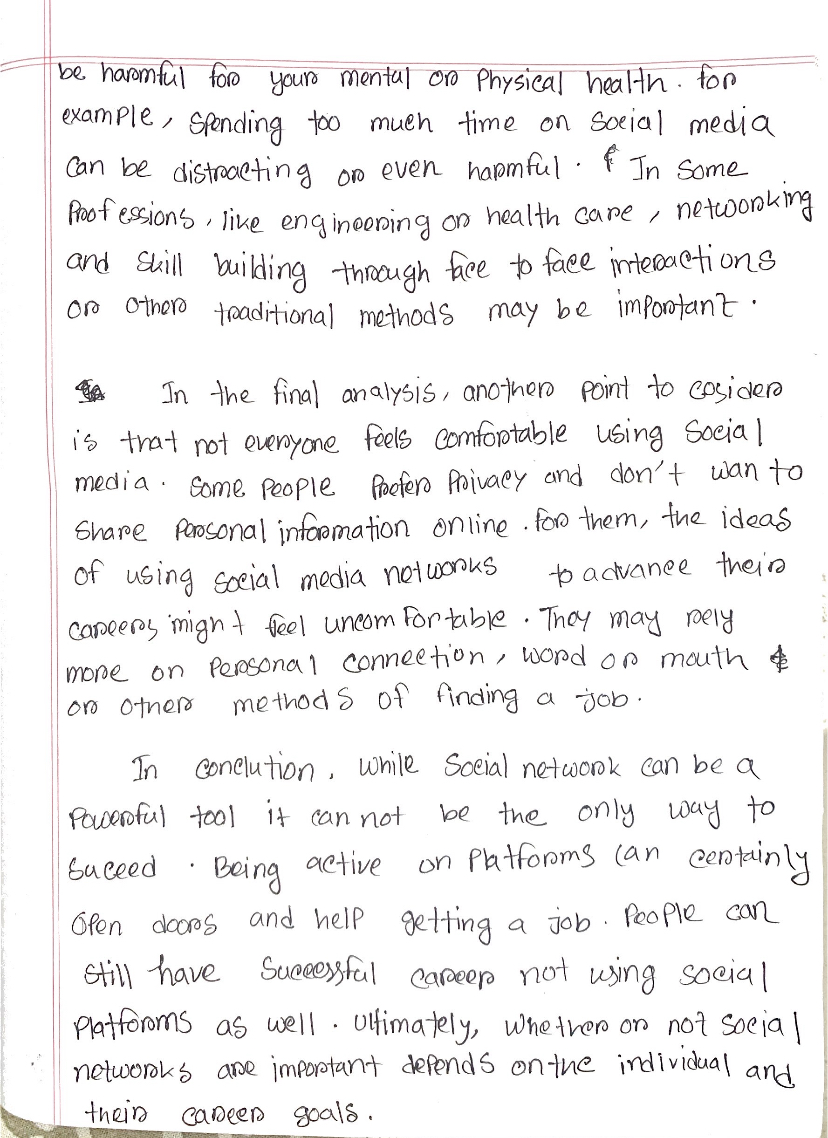 be harmful for your mental or Physical health. for
example, spending too much time on social media
can be distracting or even harmful. In some
Professions, like engineering or health care, networking
and skill building through face to face interactions
or other traditional methods may be important.
In the final analysis, another point to cosider
is that not everyone feels comfortable using social
media. some people prefer privacy and don't wan to
share personal information online. for them, the ideas
of using social media networks to advance their
careers might feel uncomfortable. They may rely
more on personal connection, word or mouth
or other methods of finding a job.
In conclution, while social network can be a
powerful tool it can not be the only way to
suceed. Being active on platforms can certainly
open doors and help getting a job. People can
still have successful career not using social
platforms as well. Ultimately, whether or not social
networks are important depends on the individual and
their career goals.